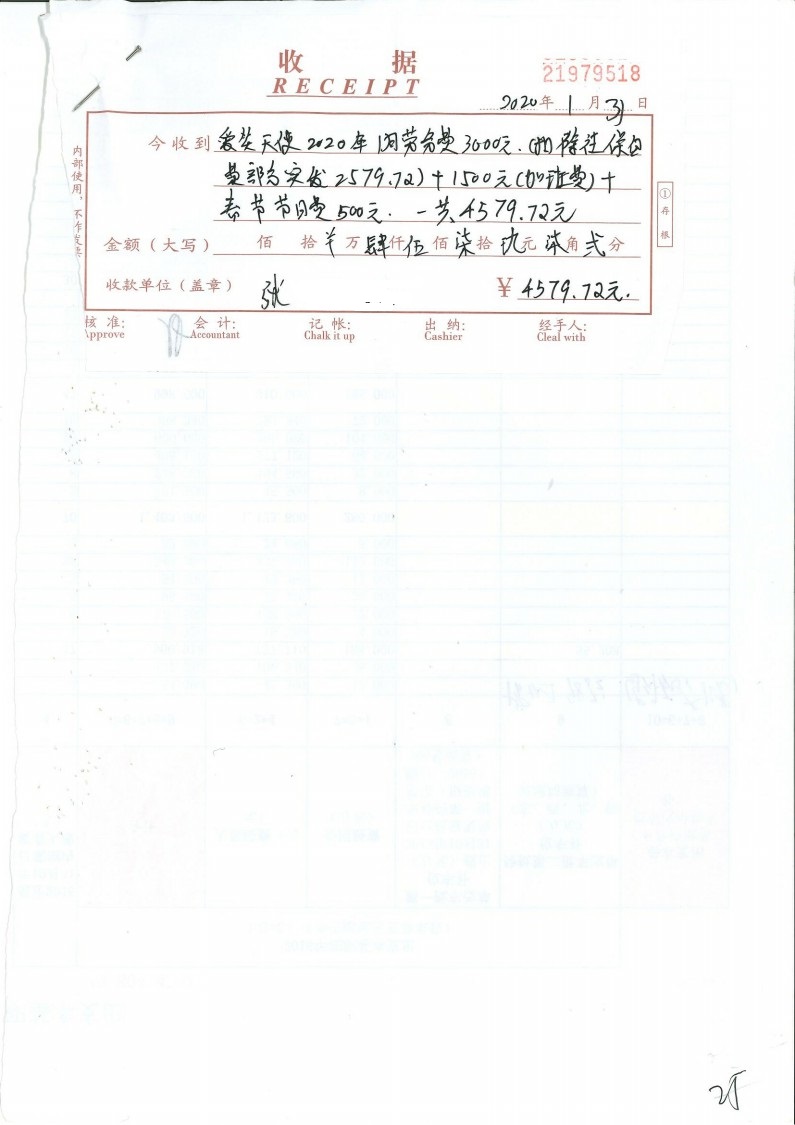 收 据
RECEIPT
21979518
2020年1月31日
内部使用,不作发票
今收到 爱笑天使2020年1月劳务费3000元.(扣除社保自
费部分实发2579.72)+1500元(加班费)+
春节节日费500元. 一共4579.72元
①存根
金额(大写) 佰 拾 万 肆仟 伍佰 柒拾 玖元 柒角 贰分
收款单位(盖章) 张 ¥ 4579.72元.
核 准: 会 计: 记 帐: 出 纳: 经手人:
Approve Accountant Chalk it up Cashier Cleal with